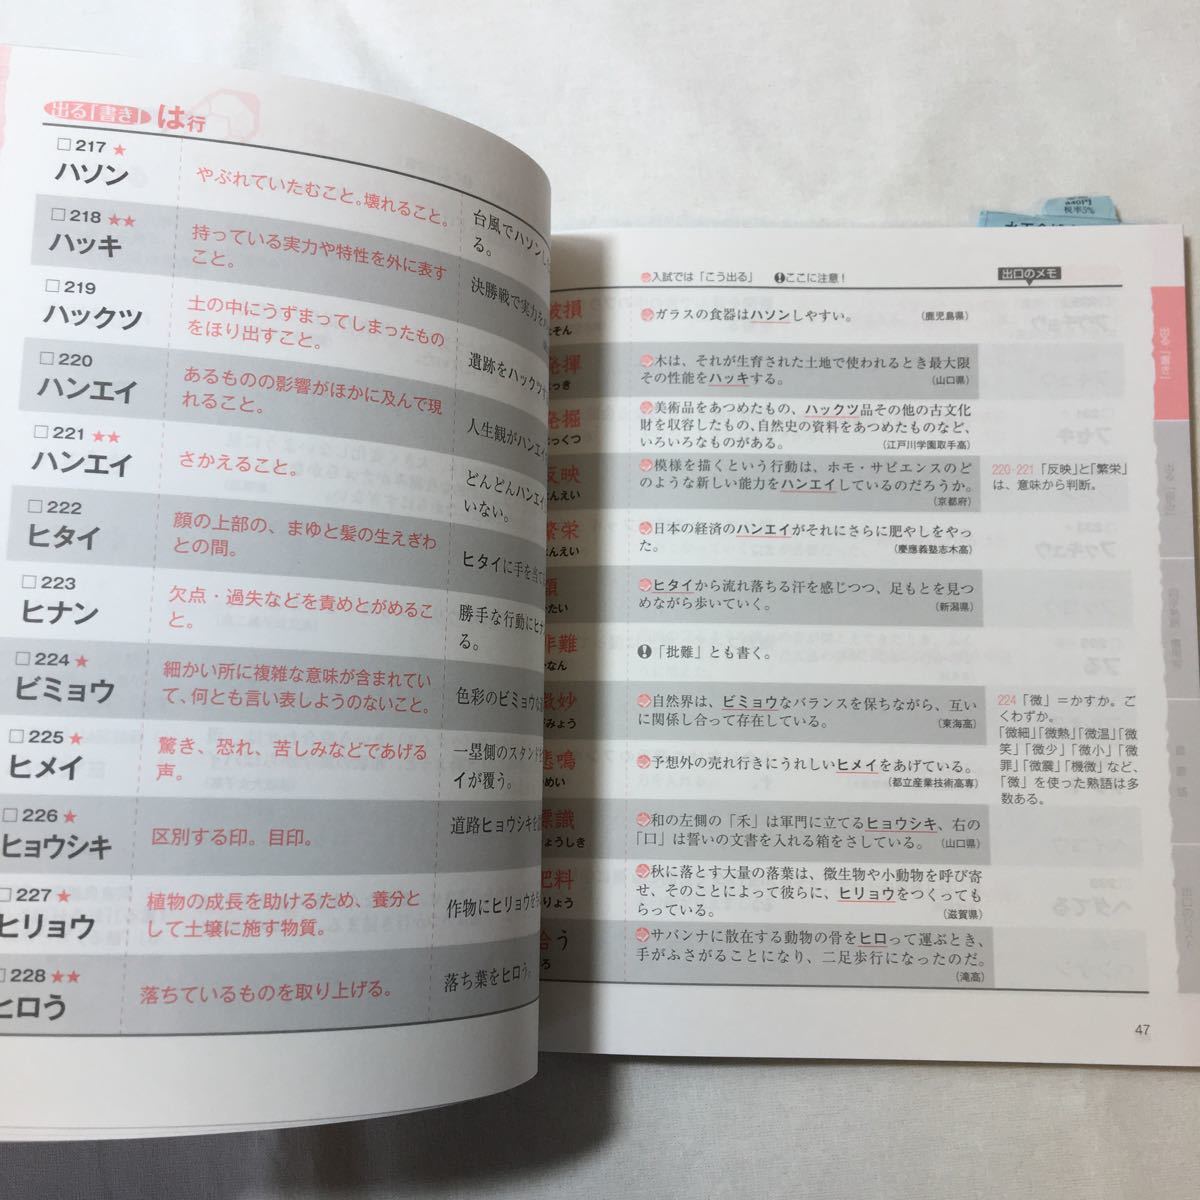 出る「書き」 は行
□217 ★
ハソン
やぶれていたむこと。壊れること。
台風でハソン
る。
□218 ★★
ハッキ
持っている実力や特性を外に表す
こと。
決勝戦で実力を
□219
ハックツ
土の中にうずまってしまったもの
をほり出すこと。
遺跡をハックツ
□220
ハンエイ
あるものの影響がほかに及んで現
れること。
人生観がハンエイ
□221 ★★
ハンエイ
さかえること。
どんどんハンエイ
いない。
□222
ヒタイ
顔の上部の、まゆと髪の生えぎわ
との間。
ヒタイに手を当て
□223
ヒナン
欠点・過失などを責めとがめるこ
と。
勝手な行動にヒナ
る。
□224 ★
ビミョウ
細かい所に複雑な意味が含まれてい
て、何とも言い表しようのないこと。
色彩のビミョウな
□225 ★
ヒメイ
驚き、恐れ、苦しみなどであげる
声。
一塁側のスタンド
イが覆う。
□226 ★
ヒョウシキ
区別する印。目印。
道路ヒョウシキを
□227 ★
ヒリョウ
植物の成長を助けるため、養分と
して土壌に施す物質。
作物にヒリョウを
□228 ★★
ヒロう
落ちているものを取り上げる。
落ち葉をヒロう。
税率5%
入試では「こう出る」 ❗ここに注意！
出口のメモ
破損
ガラスの食器はハソンしやすい。
(鹿児島県)
発揮
木は、それが生育された土地で使われるとき最大限
その性能をハッキする。
(山口県)
発掘
美術品をあつめたもの、ハックツ品その他の古文化
財を収容したもの、自然史の資料をあつめたものなど、
いろいろなものがある。
(江戸川学園取手高)
反映
模様を描くという行動は、ホモ・サピエンスのど
のような新しい能力をハンエイしているのだろうか。
(京都府)
220-221「反映」と「繁栄」
は、意味から判断。
繁栄
日本の経済のハンエイがそれにさらに肥やしをやっ
た。
(慶應義塾志木高)
額
ヒタイから流れ落ちる汗を感じつつ、足もとを見つ
めながら歩いていく。
(新潟県)
非難
❗「批難」とも書く。
微妙
自然界は、ビミョウなバランスを保ちながら、互い
に関係し合って存在している。
(東海高)
224「微」＝かすか。ご
くわずか。
「微細」「微熱」「微温」「微
笑」「微少」「微小」「微
罪」「微震」「機微」など、
「微」を使った熟語は多
数ある。
悲鳴
予想外の売れ行きにうれしいヒメイをあげている。
(都立産業技術高専)
標識
和の左側の「禾」は軍門に立てるヒョウシキ、右の
「口」は誓いの文書を入れる箱をさしている。
(山口県)
肥料
秋に落とす大量の落葉は、微生物や小動物を呼び寄
せ、そのことによって彼らに、ヒリョウをつくっても
らっている。
(滋賀県)
拾う
サバンナに散在する動物の骨をヒロって運ぶとき、
手がふさがることになり、二足歩行になったのだ。
(滝高)
47